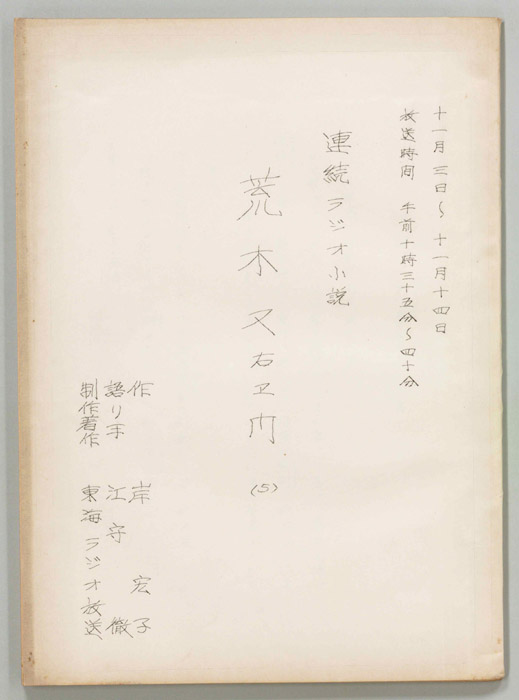 十一月三日〜十一月十四日
放送時間 午前十時三十五分〜四十分
連続ラジオ小説
荒木又右ヱ門 (5)
作 岸宏子
語り手 江守徹
制作著作 東海ラジオ放送